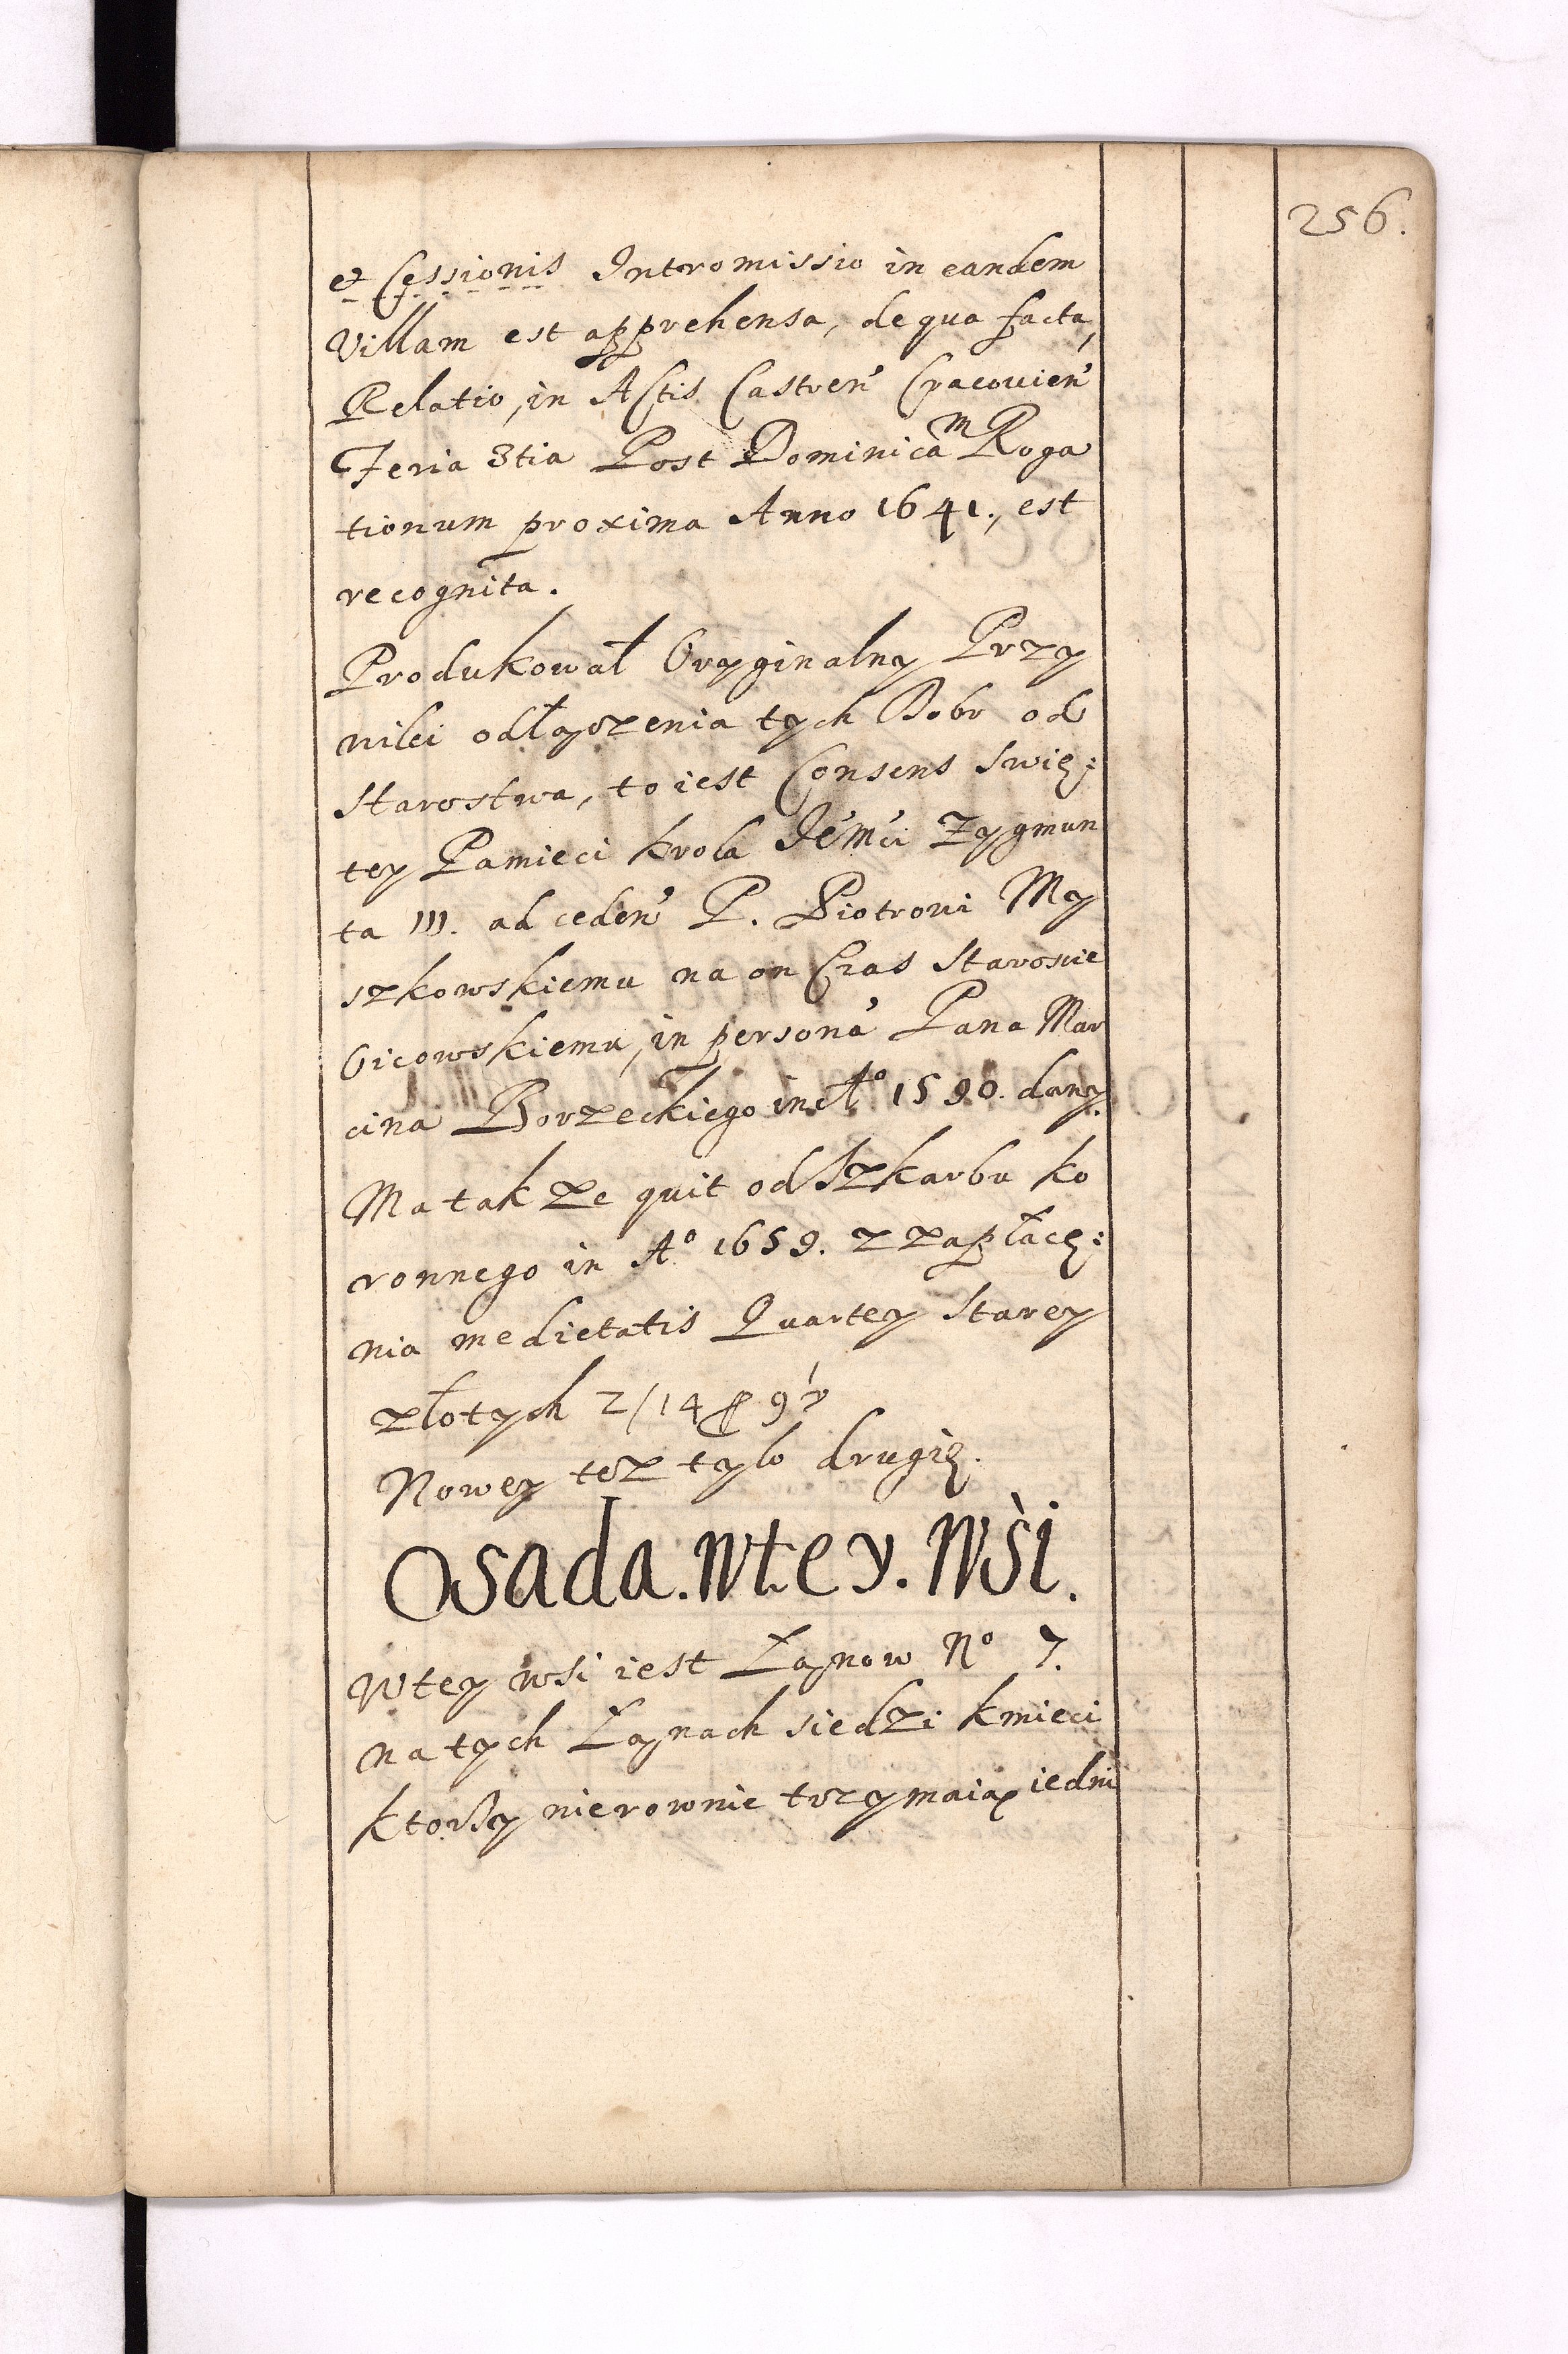 256.
et Cessionis Intromissio in eandem
Villam est apprehensa, de qua facta,
Relatio, in Actis Castren̕ Cracouien̕
Feria 3tia Post Dominicam Roga
tionum proxima Anno 1641., est
recognita.
Produkował Oryginalny Przy
wilei odłączenia tych Dobr od
Starostwa, to iest Consens Swię:
tey Pamieci krola Jému Zygmun
ta III. ad ceden̕ P. Piotrowi My
szkowskiemu na on Czas Staroscie
Oicowskiemu, in persona̕ Pana Mar
cina Borzeckiego in Aº 1590. dany.
Ma tak ze quit od Szkarbu ko
ronnego in Aº 1659. z zapłacę:
nia medietatis Quartey Starey
złotych 2/14
Nowey tez tylo drugię.
Osada. wtey. Wśi.
Wtey wsi iest Łanow Nº 7.
na tych Łanach siedzi kmieci
ktorzy nierownie trzymaią iedni